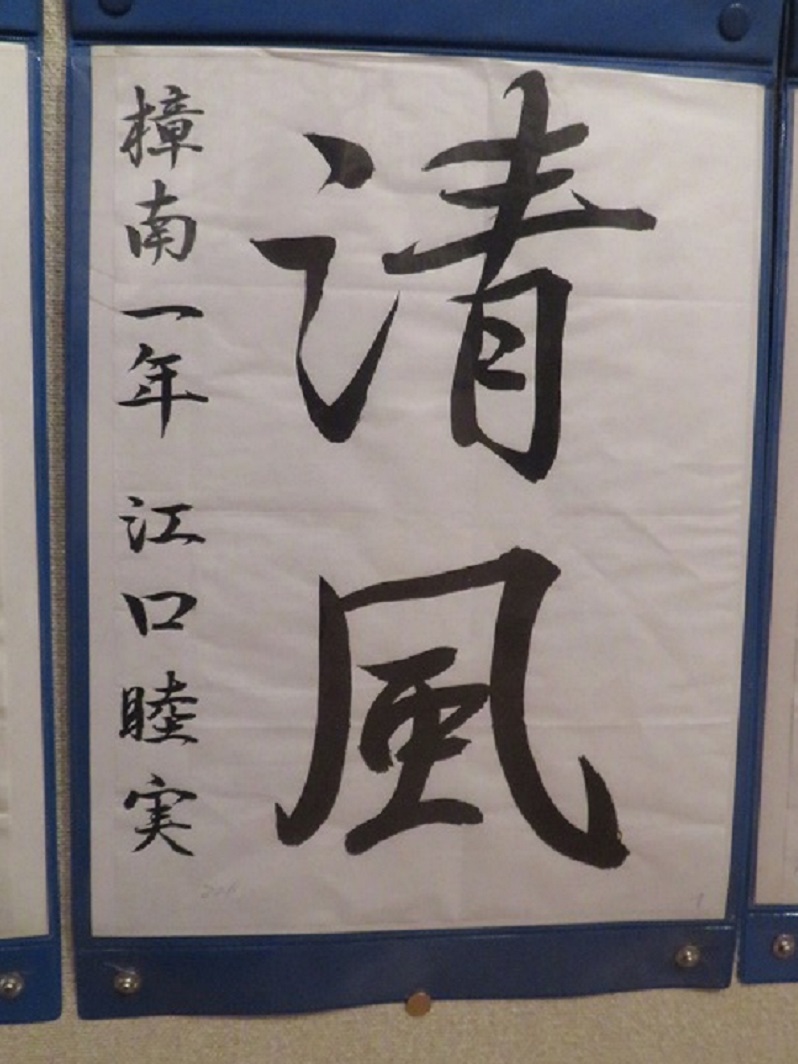 清風
樟南一年 江口睦実